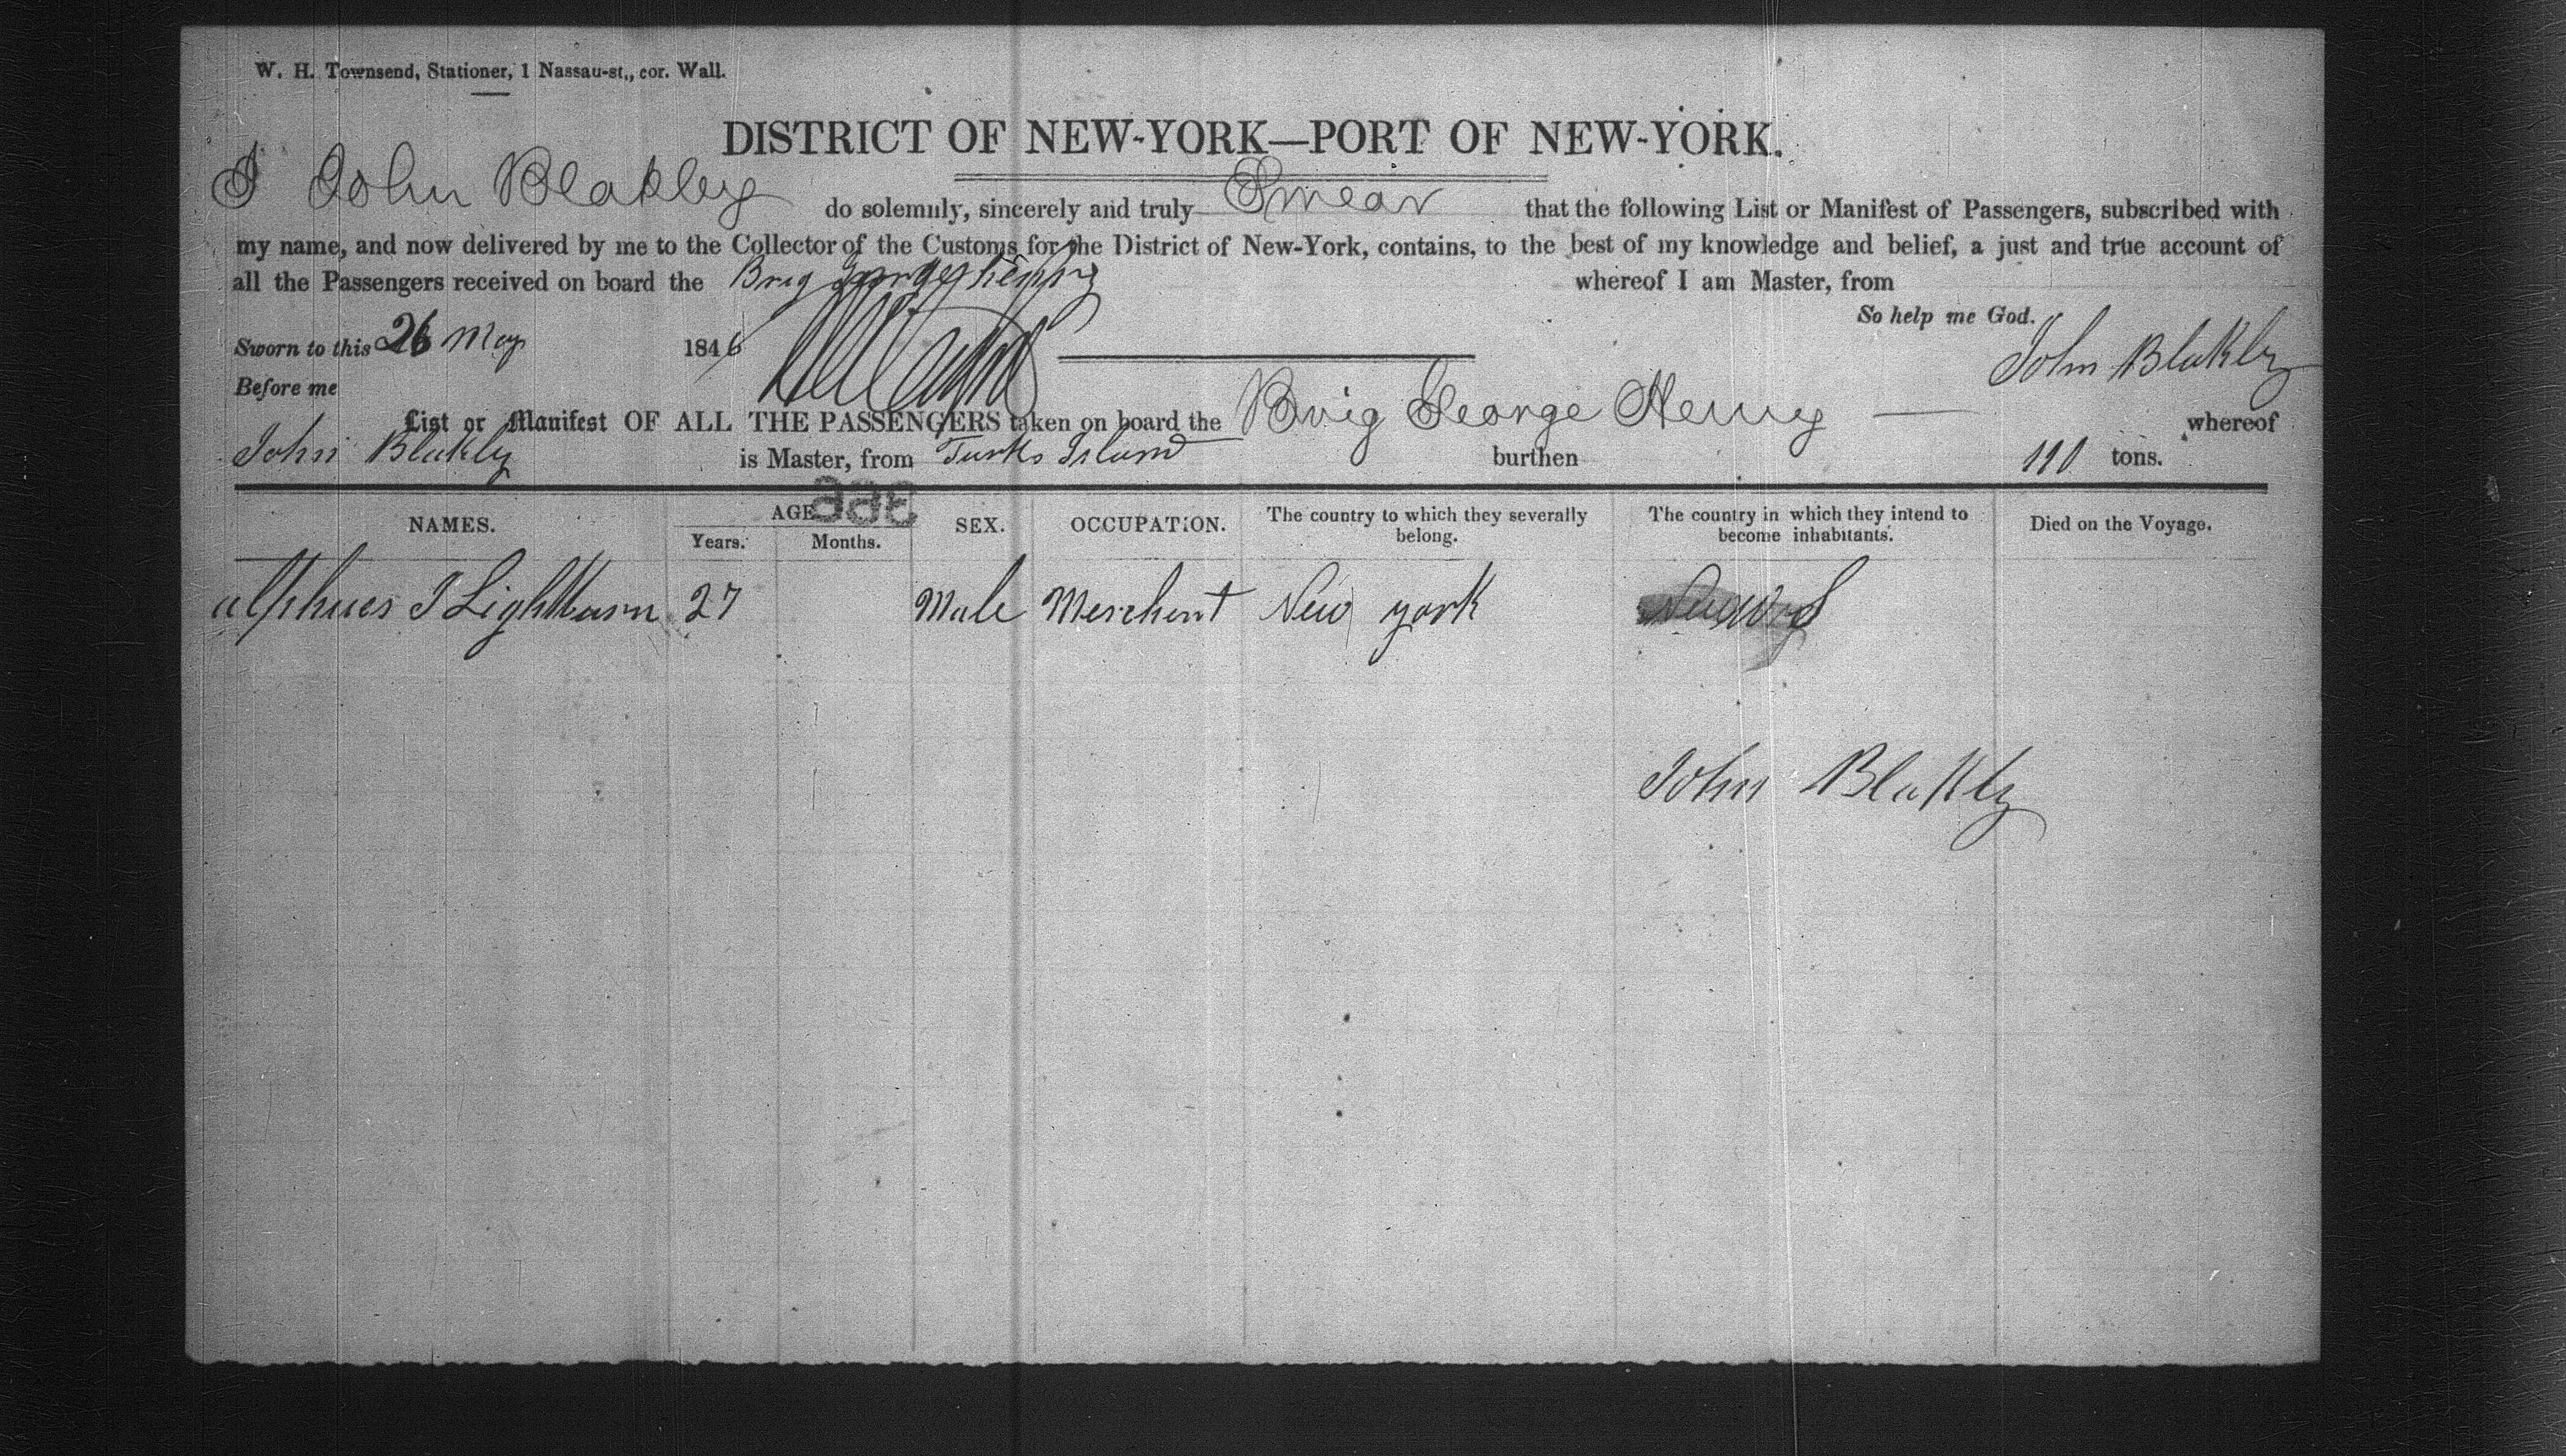 W. H. Townsend, Stationer, 1 Nassau-st., cor. Wall.
DISTRICT OF NEW-YORK—PORT OF NEW-YORK.
I John Blakley do solemnly, sincerely and truly Swear that the following List or Manifest of Passengers, subscribed with
my name, and now delivered by me to the Collector of the Customs for the District of New-York, contains, to the best of my knowledge and belief, a just and true account of
all the Passengers received on board the Brig George henry whereof I am Master, from
So help me God.
Sworn to this 26 May 1846 John Blakly
Before me
List or Manifest OF ALL THE PASSENGERS taken on board the Brig George Henry — whereof
John Blakly is Master, from Turks Island burthen 110 tons.
NAMES. AGE 366 SEX. OCCUPATION. The country to which they severally belong. The country in which they intend to become inhabitants. Died on the Voyage.
Years. Months.
alpheus J 27 Male Merchant New york
John Blakly